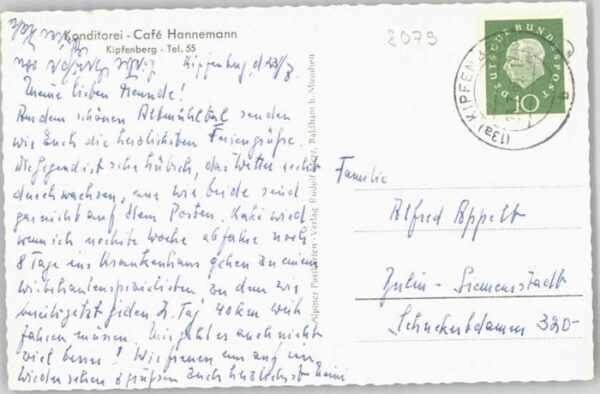 Konditorei - Café Hannemann
Kipfenberg - Tel. 55
8079
Kipfenberg, d 23/8.
Meine lieben Freunde!
Aus dem schönen Altmühltal senden
wir Euch die herzlichsten Feriengrüße.
Die Gegend ist sehr hübsch, das Wetter recht
durchwachsen, uns wie beide sind
gar nicht auf dem Posten. wird
wenn ich nächste Woche abfahre noch
8 Tage ins Krankenhaus gehen zu einem
zu dem wir
jeden 2. Tag 40 km weit
fahren müssen. Mir geht es auch nicht
viel besser! Wir freuen uns auf ein
Wiedersehen & grüßen Euch herzlichst
Alpiner Postkarten - Verlag Rudolf Baldham b. München
DEUTSCHE BUNDESPOST
10
(13a) KIPFENBERG
Familie
Alfred Appelt
Berlin - Siemensstadt
Schuckertdamm 320-